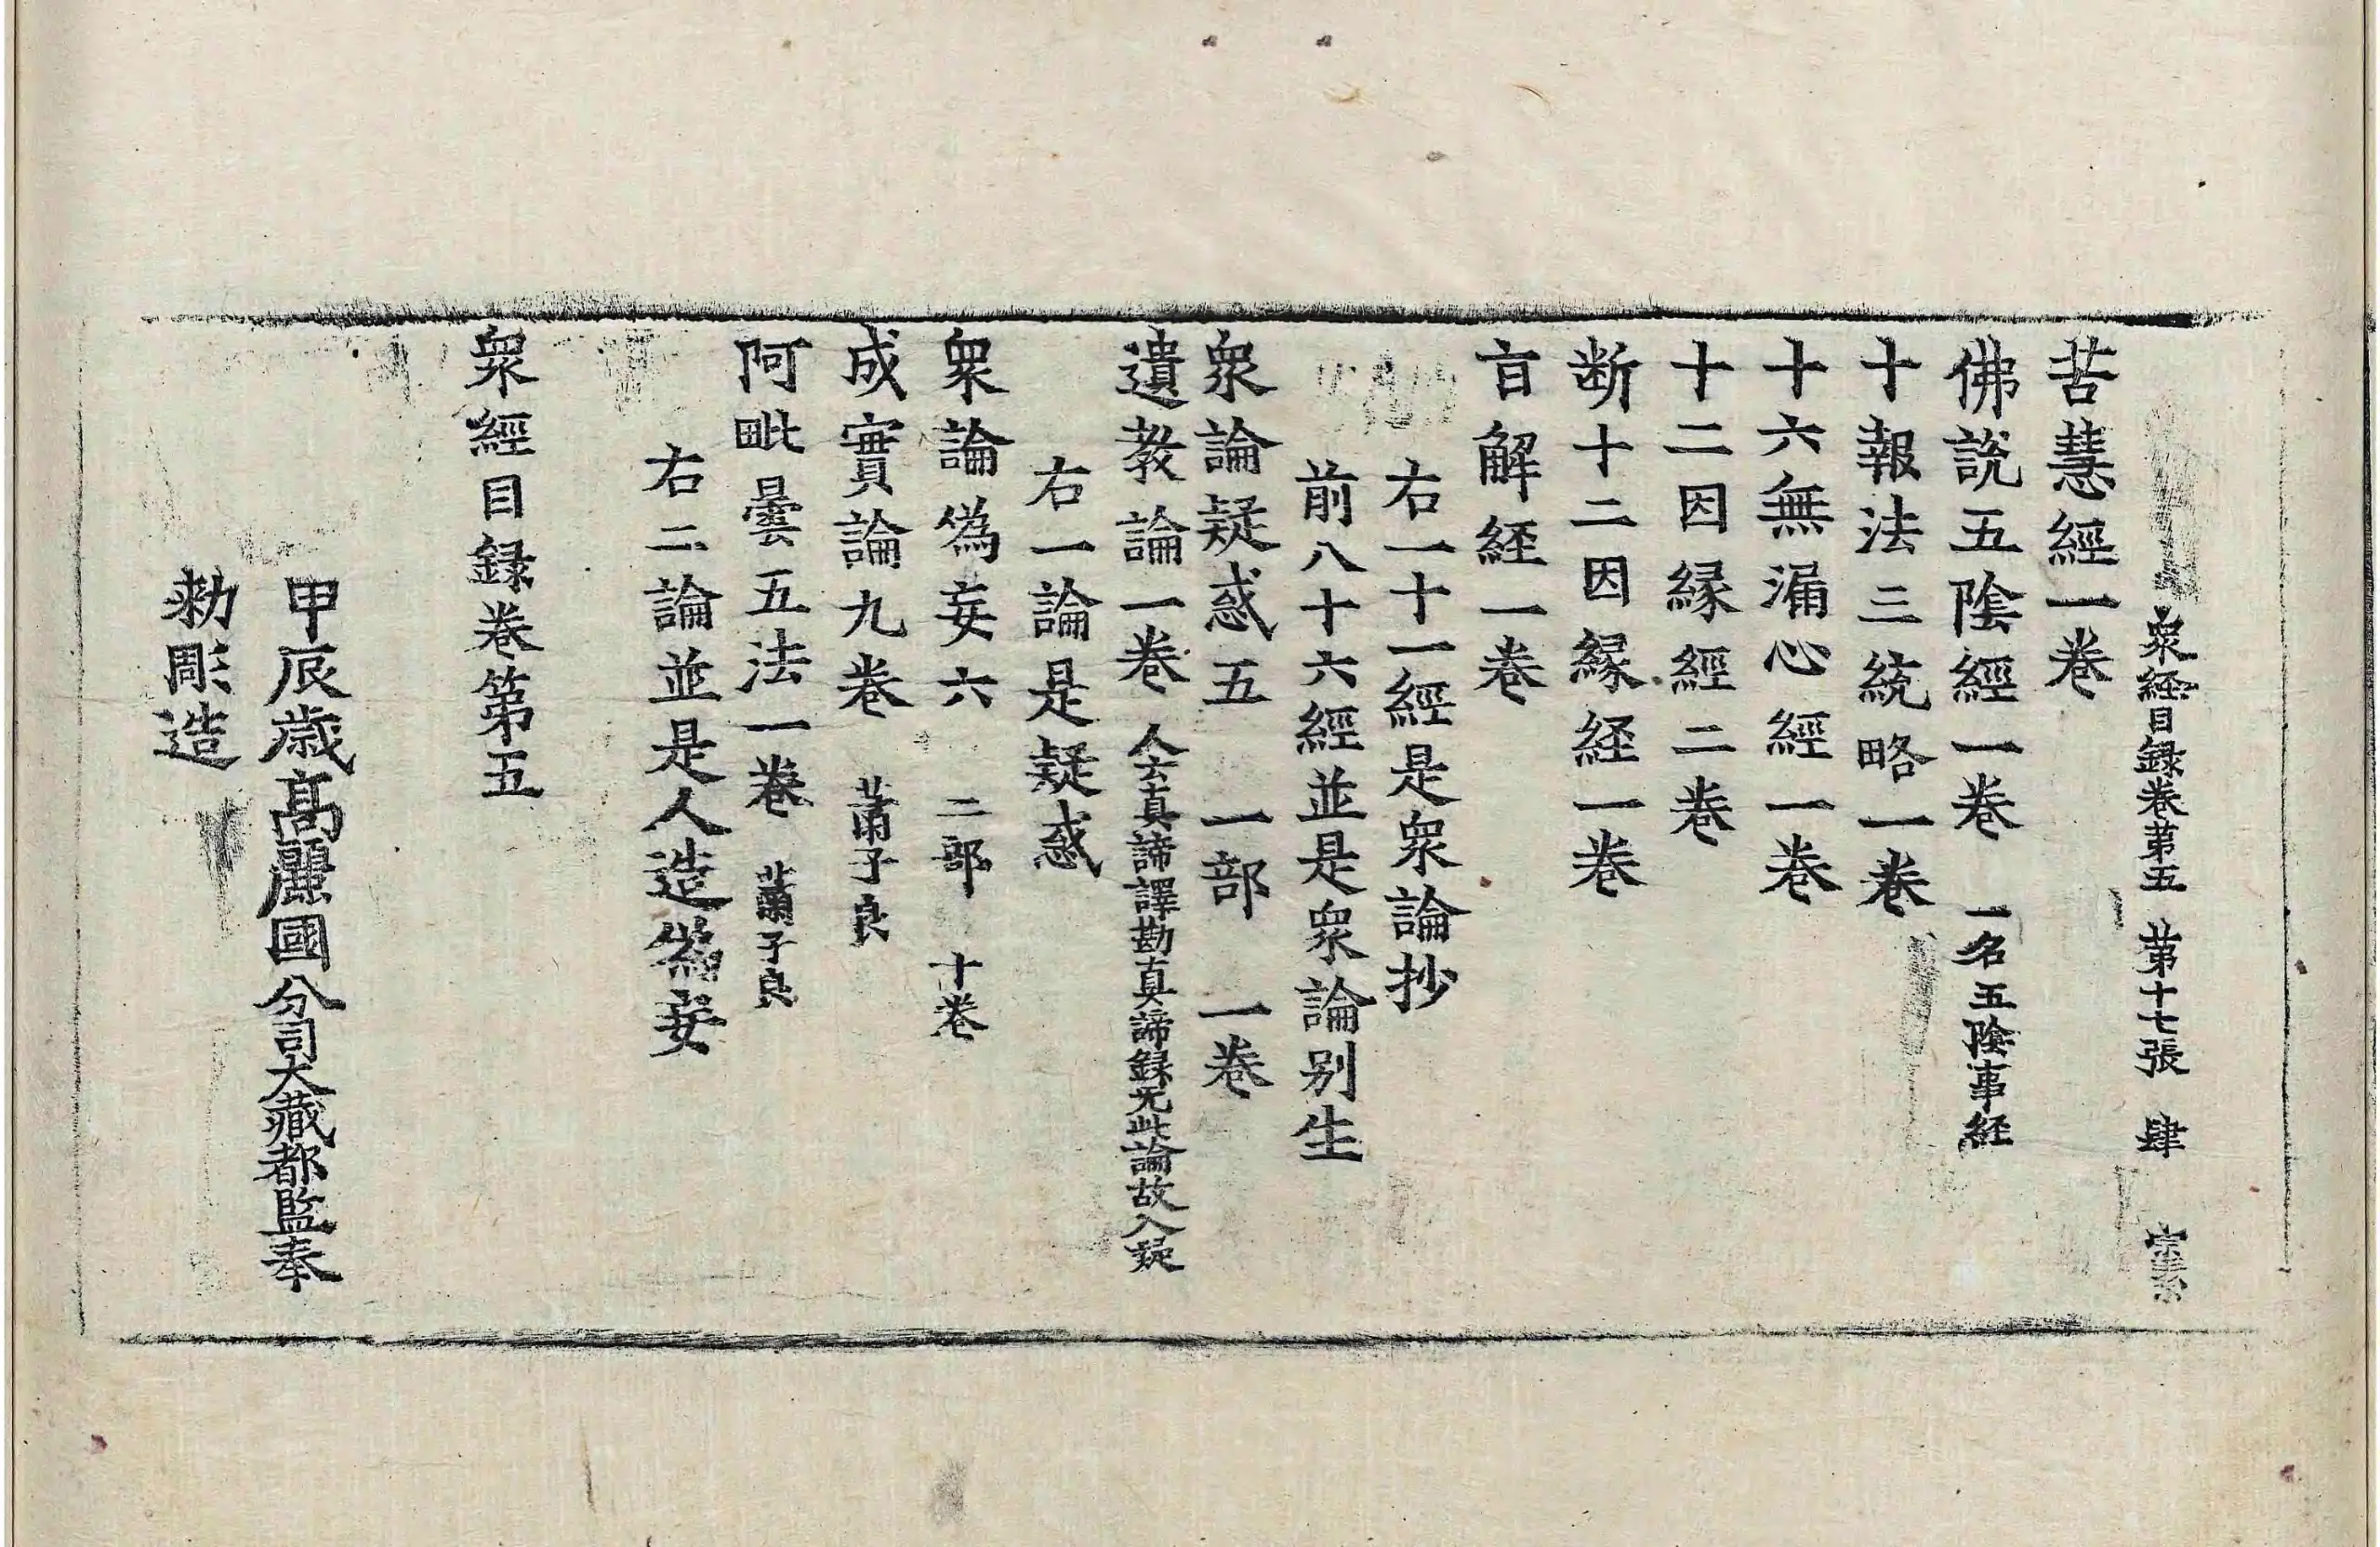 衆経目録巻第五 第十七張 肆
苦慧經一巻
佛說五陰經一巻 一名五陰事経
十報法三統略一巻
十六無漏心經一巻
十二因縁經二巻
断十二因縁経一巻
盲解経一巻
右一十一經是衆論抄
前八十六經並是衆論别生
衆論疑惑五 一部 一巻
遺教論一巻 人云真諦譯勘真諦録无此論故入疑
右一論是疑惑
衆論偽妄六 二部 十巻
成實論九巻 蕭子良
阿毗曇五法一巻 蕭子良
右二論並是人造偽妄
衆經目録巻第五
甲辰歳髙麗國分司大藏都監奉
勑彫造